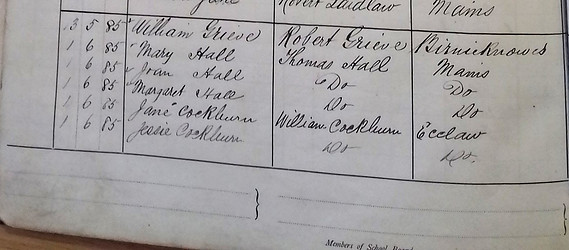 Robert Laidlaw Mains
13 5 85 William Grieve Robert Grieve Birnieknowes
1 6 85 Mary Hall Thomas Hall Mains
1 6 85 Joan Hall Do Do
1 6 85 Margaret Hall Do Do
1 6 85 Jane Cockburn William Cockburn Ecclaw
1 6 85 Jessie Cockburn Do Do.
Members of School Board